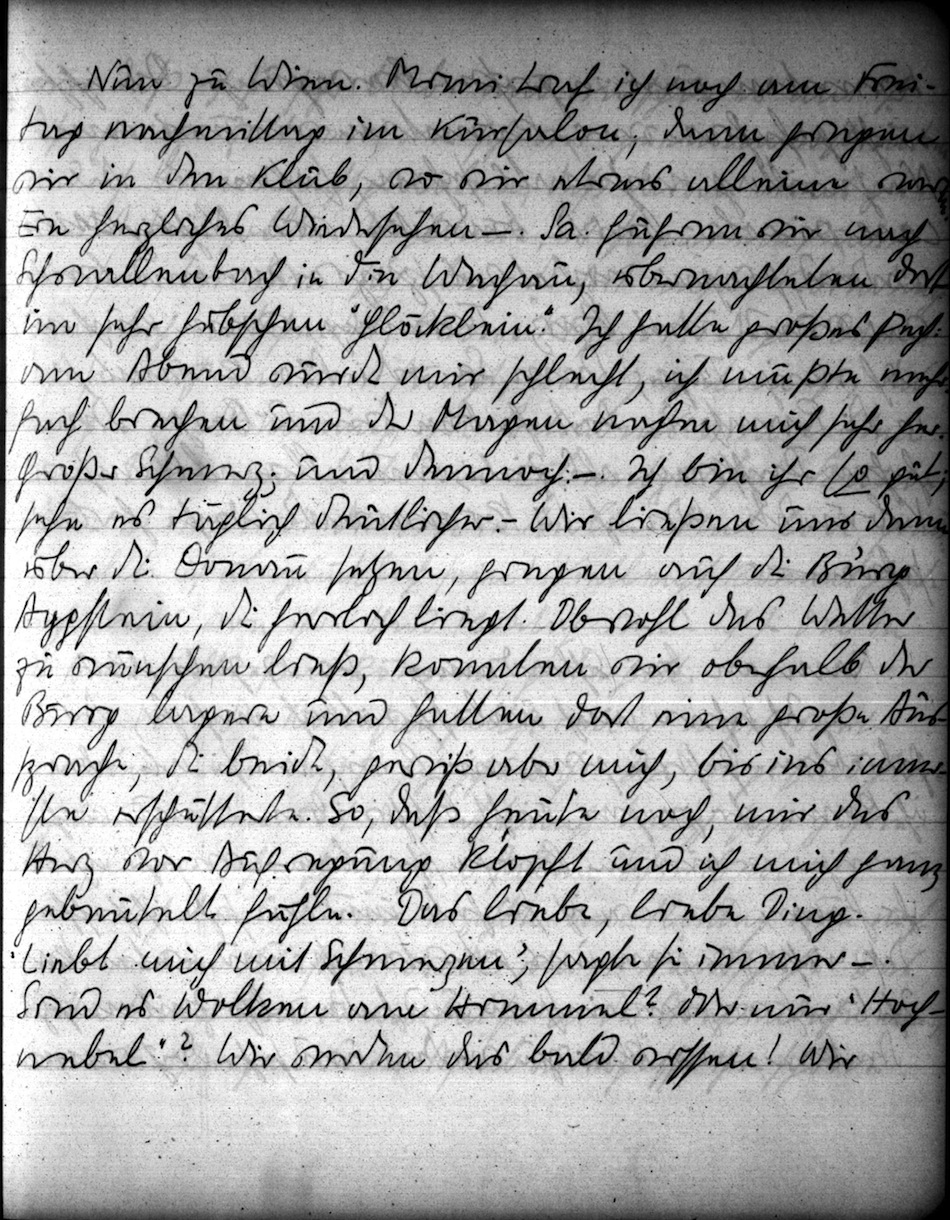 Nun zu Wien. Mimi traf ich noch am Frei-
tag nachmittag im Kursalon, dann gingen
wir in den Klub, wo wir etwas alleine war
Ein herzliches Wiedersehen –. Sa. fuhren wir nach
Schwallenbach in der Wachau, übernachteten dort
im sehr hübschen "Glöcklein". Ich hatte großes Pech.
am Abend wurde mir schlecht, ich mußte mehr
fach brechen und der Magen nahm mich sehr her.
Großer Schmerz; und dennoch –. Ich bin ihr so gut,
sehe es täglich deutlicher. – Wir ließen uns dann
über die Donau setzen, gingen auf die Burg
Aggstein, die herrlich liegt. Obwohl das Wetter
zu wünschen ließ, konnten wir oberhalb der
Burg lagern und hatten dort eine große Aus
sprache, die beide, gewiß aber mich, bis ins inner
ste erschütterte. So, daß heute noch, mir das
Herz vor Aufregung klopft und ich mich ganz
gebeutelt fühle. Das liebe, liebe Ding.
"Liebt mich mit Schmerzen", sagte sie immer –.
Sind es Wolken am Himmel? Oder nur "Hoch-
nebel"? Wir werden dies bald wissen! Wir